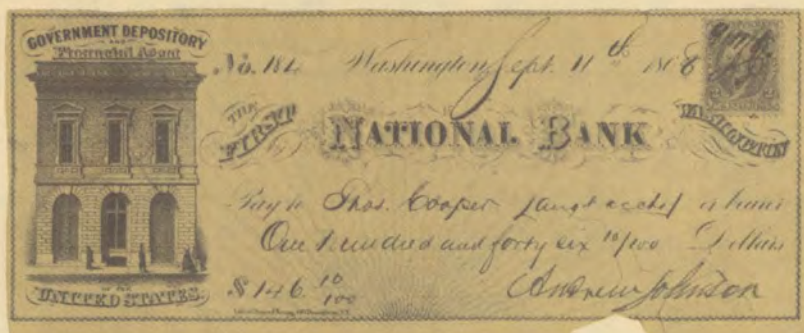 GOVERNMENT DEPOSITORY
AND
Financial Agent
OF THE
UNITED STATES.
No. 184 Washington, Sept. 11th 1868
THE FIRST NATIONAL BANK
Pay to Thos. Cooper or bearer
One hundred and forty six 10/100 Dollars
$146 10/100 Andrew Johnson